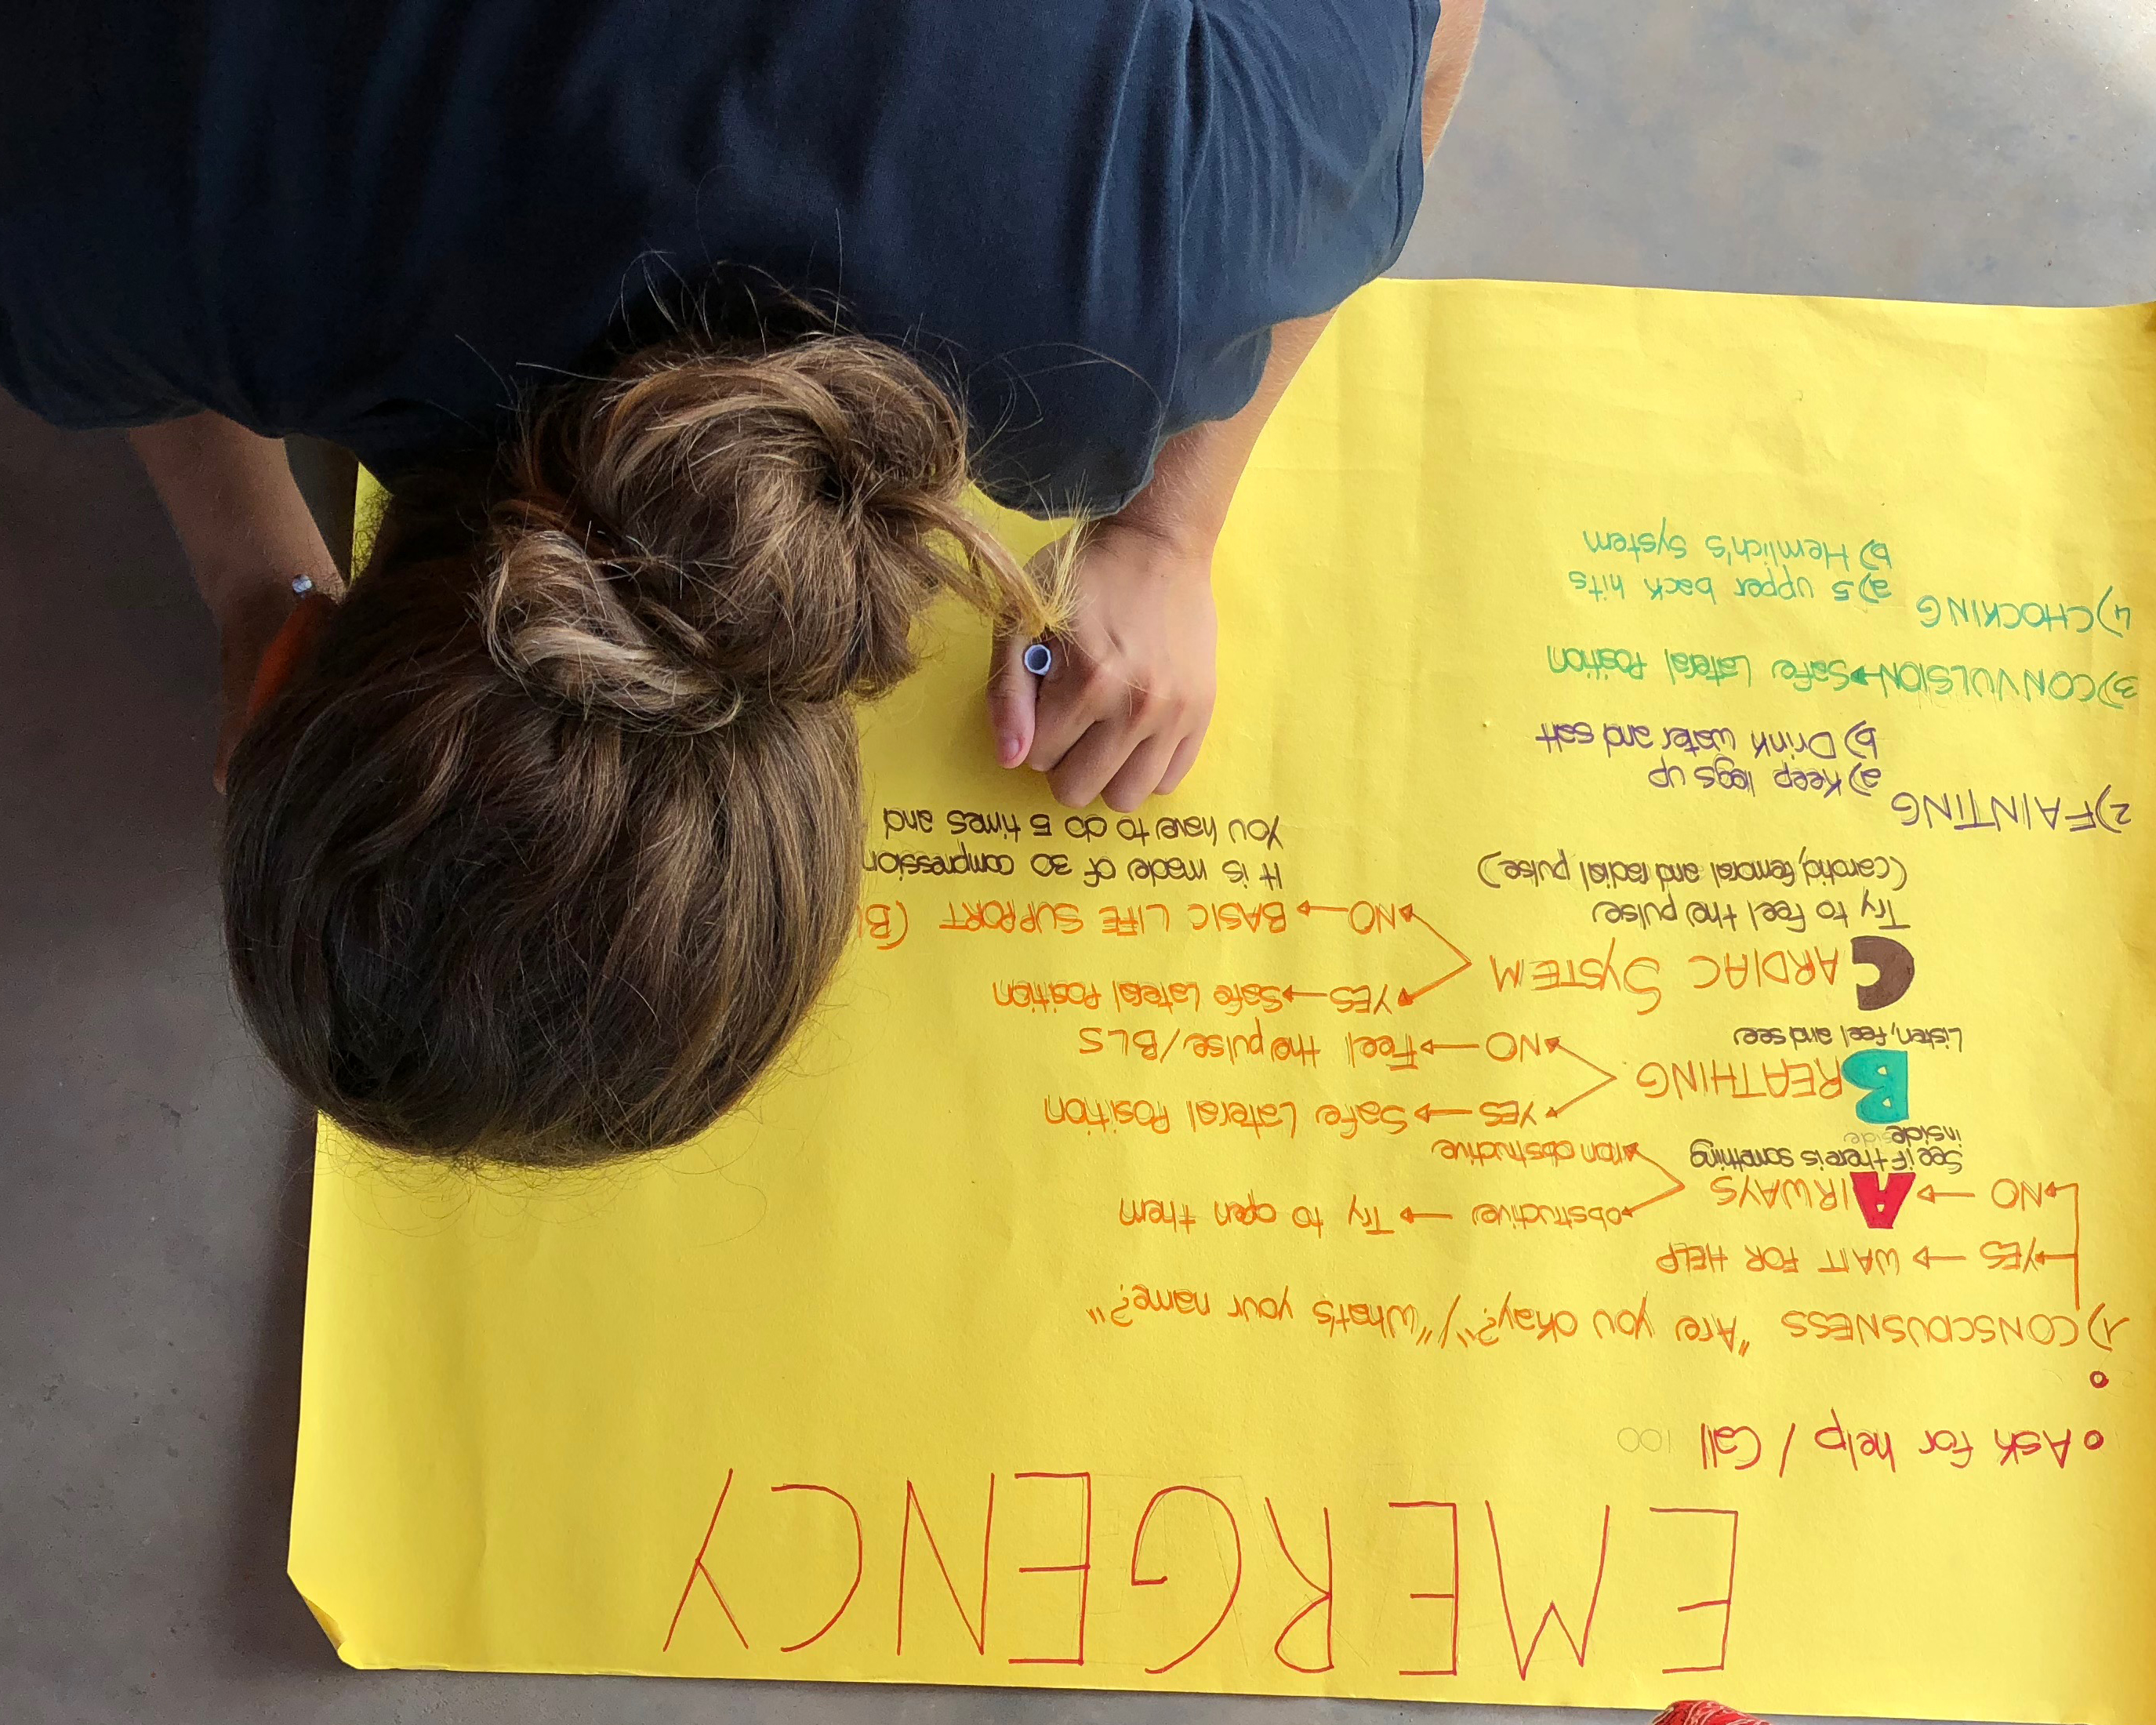 EMERGENCY
Ask for help / Call 100
1) CONSCIOUSNESS "Are you okay?"/"What's your name?"
YES → WAIT FOR HELP
NO → AIRWAYS
See if there is something
inside
obstructive → Try to open them
non obstructive
BREATHING
Listen, feel and see
YES → Safe Lateral Position
NO → Feel the pulse/BLS
CARDIAC SYSTEM
Try to feel the pulse
(carotid, femoral and radial pulse)
YES → Safe Lateral Position
NO → BASIC LIFE SUPPORT (B
It is made of 30 compression
You have to do 5 times and
2) FAINTING
a) Keep leggs up
b) Drink water and salt
3) CONVULSION → Safe Lateral Position
4) CHOCKING
a) 5 upper back hits
b) Hemlich's System